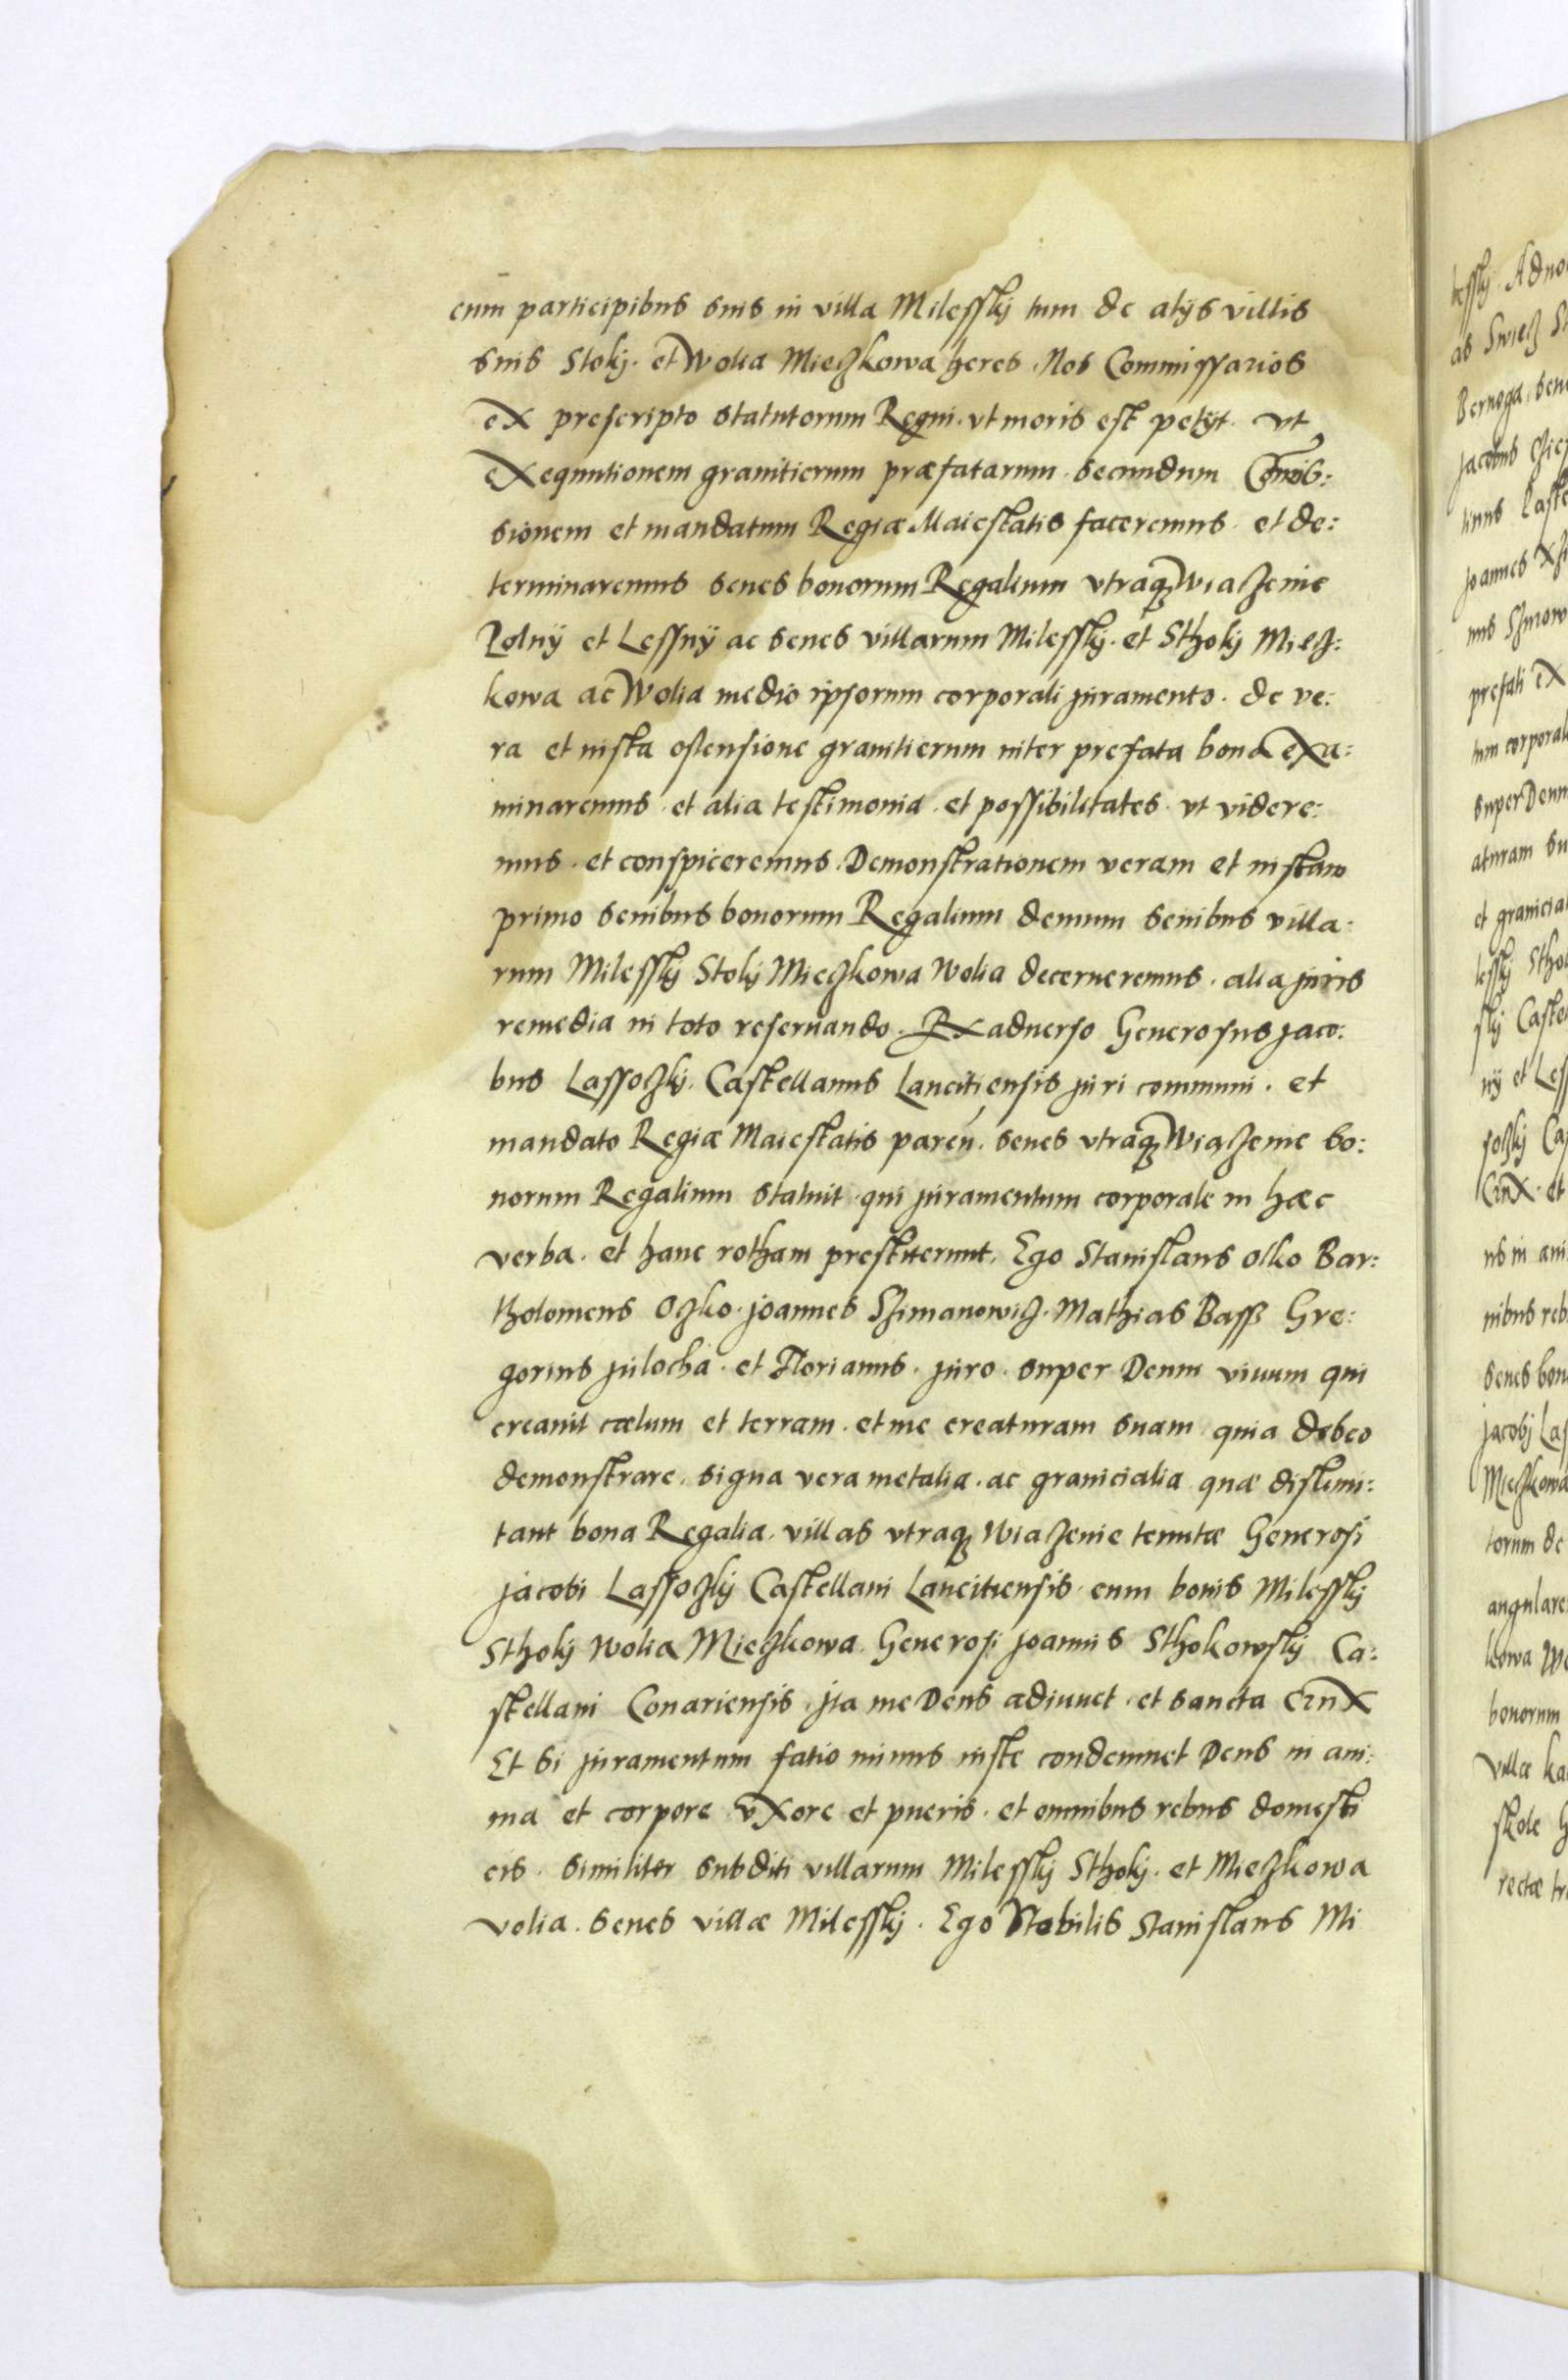 cum participibus suis in villa Milessky tum de alijs villis
suis Stoky. et Wolia Mieczkowa heres. Nos Commissarios
ex prescripto statutorum Regni. vt moris est petijt. vt
exequutionem granitierum præfatarum secundum Comis:
sionem et mandatum Regiæ Maiestatis faceremus. et de:
terminaremus senes bonorum Regalium vtraq; Wiazenie
Polny et Lessny ac senes villarum Milessky. et Sthoky Miecz:
kowa ac Wolia medio ipsorum corporali juramento. de ve:
ra et iusta ostensione granitierum inter prefata bona exa:
minaremus. et alia testimonia. et possibilitates. vt videre:
mus. et conspiceremus. Demonstrationem veram et iustam
primo senibus bonorum Regalium demum senibus villa:
rum Milessky Stoky Mieczkowa Wolia decerneremus. alia juris
remedia in toto reseruando. Ex aduerso Generosus jaco:
bus Lassoczky. Castellanus Lancitiensis juri communi. et
mandato Regiæ Maiestatis paren. senes vtraq; Wiazenie bo:
norum Regalium statuit. qui juramentum corporale in hæc
verba. et hanc rotham prestiterunt. Ego Stanislaus Olko Bar:
tholomeus Oczko. joannes Szimanowicz. Mathias Bass Gre:
gorius julocha. et Florianus. juro. super Deum viuum qui
creauit cælum et terram. et me creaturam suam quia debeo
demonstrare. signa vera metalia. ac granicialia quæ dislimi:
tant bona Regalia. villas vtraq; Wiazenie tenutæ Generosi
jacobi Lassoczky Castellani Lancitiensis. cum bonis Milessky
Sthoky Wolia Mieczkowa. Generosi joannis Sthokowsky Ca:
stellani Conariensis. jta me Deus adiuuet. et sancta Crux
Et si juramentum fatio minus iuste condemnet Deus in ani:
ma et corpore vxore et pueris. et omnibus rebus domesti
cis. similiter subditi villarum Milessky Sthoky. et Mieczkowa
volia. senes villæ Milessky. Ego Nobilis Stanislaus Mi